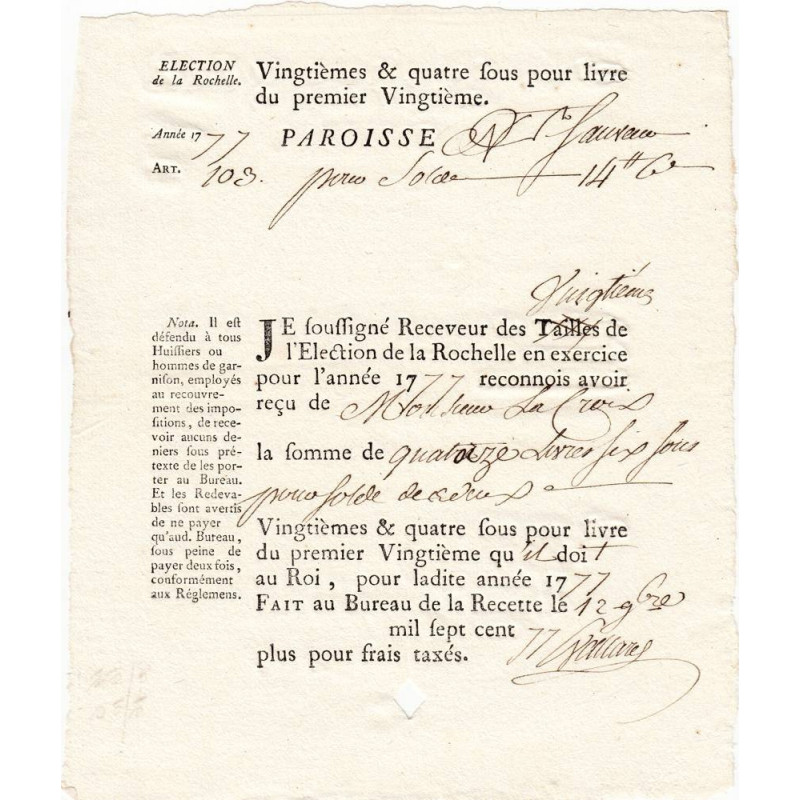 ELECTION
de la Rochelle.
Vingtièmes & quatre ſous pour livre
du premier Vingtième.
Année 1777 PAROISSE St Sauveur
ART. 103. pour Solde 14tt 6s
Vingtièmes
JE ſouſſigné Receveur des Tailles de
l'Election de la Rochelle en exercice
pour l'année 1777 reconnois avoir
reçu de Monsieur La Croix
la ſomme de quatorze Livres six sous
pour solde de deux
Vingtièmes & quatre ſous pour livre
du premier Vingtième qu'il doit
au Roi, pour ladite année 1777
FAIT au Bureau de la Recette le 12 9bre
mil ſept cent 77
plus pour frais taxés.
Nota. Il eſt
défendu à tous
Huiſſiers ou
hommes de gar-
niſon, employés
au recouvre-
ment des impo-
ſitions, de rece-
voir aucuns de-
niers ſous pré-
texte de les por-
ter au Bureau.
Et les Redeva-
bles ſont avertis
de ne payer
qu'aud. Bureau,
ſous peine de
payer deux fois,
conformément
aux Réglemens.